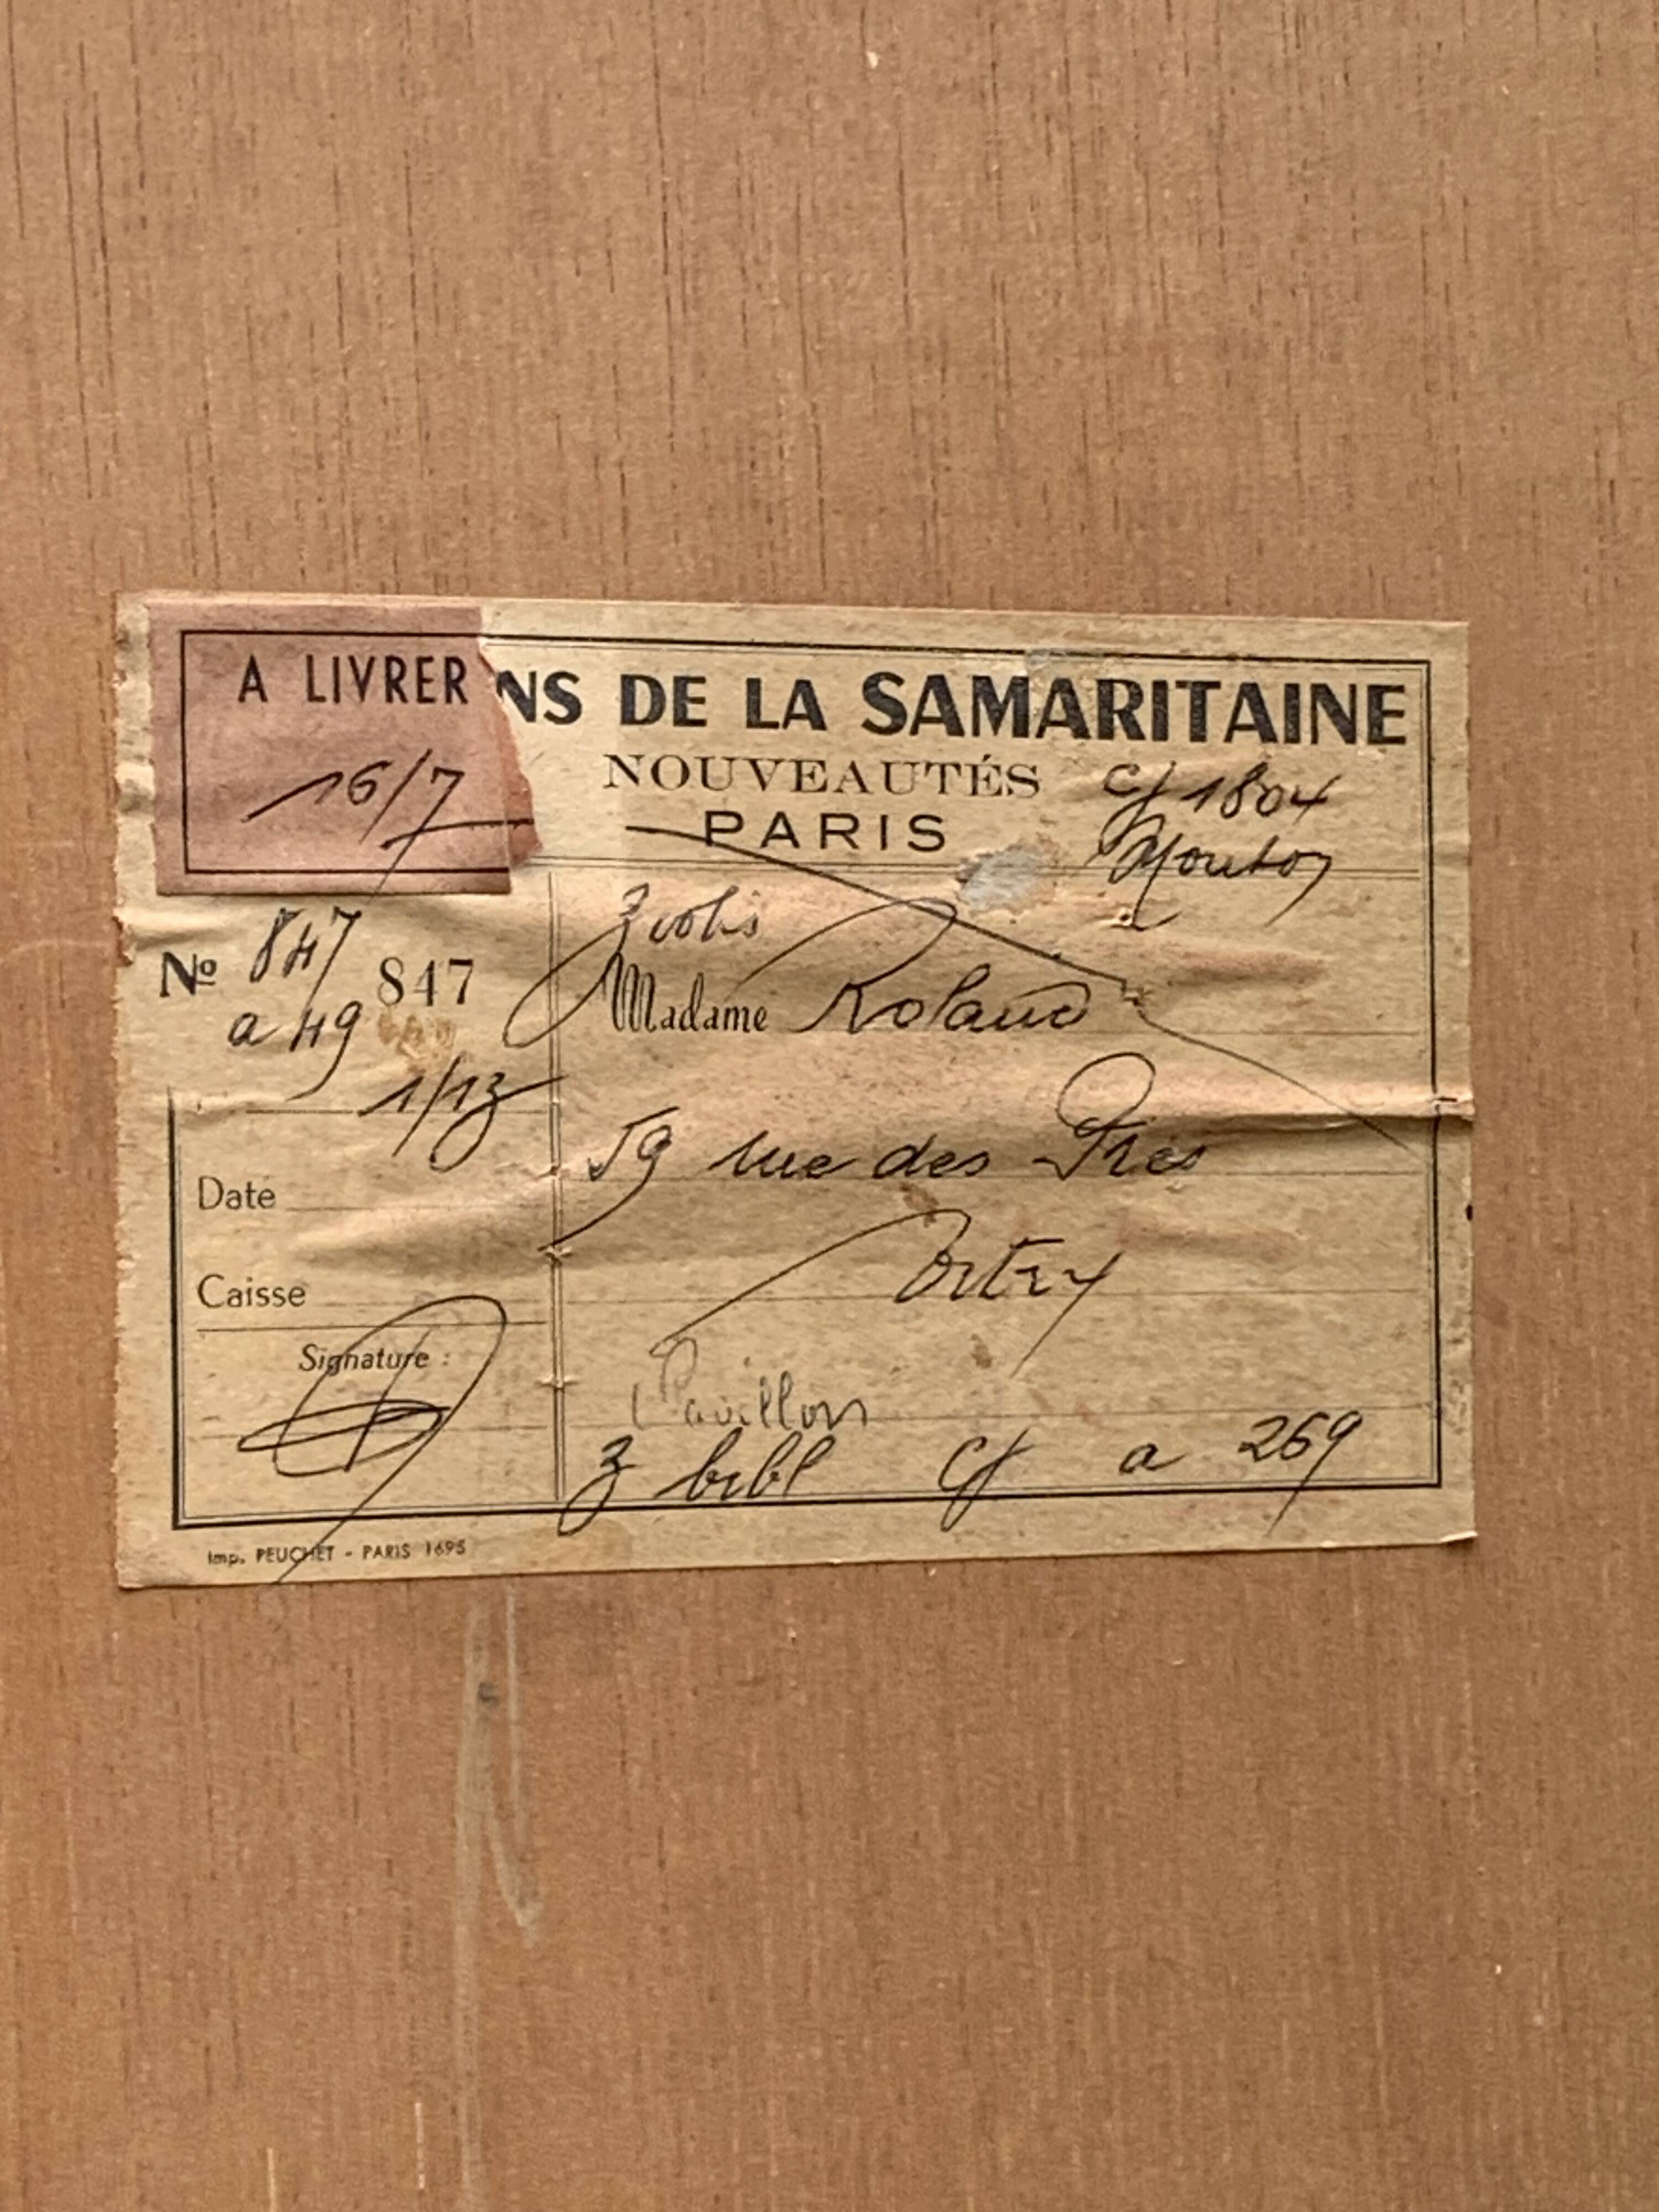 A LIVRER
16/7
NS DE LA SAMARITAINE
NOUVEAUTÉS
PARIS
1804
Nº 847
a 49
847
1/13
Madame Roland
59 rue des Prés
Date
Caisse
Signature :
Pavillon
3 bibl a 269
Imp. PEUCHET - PARIS 1695